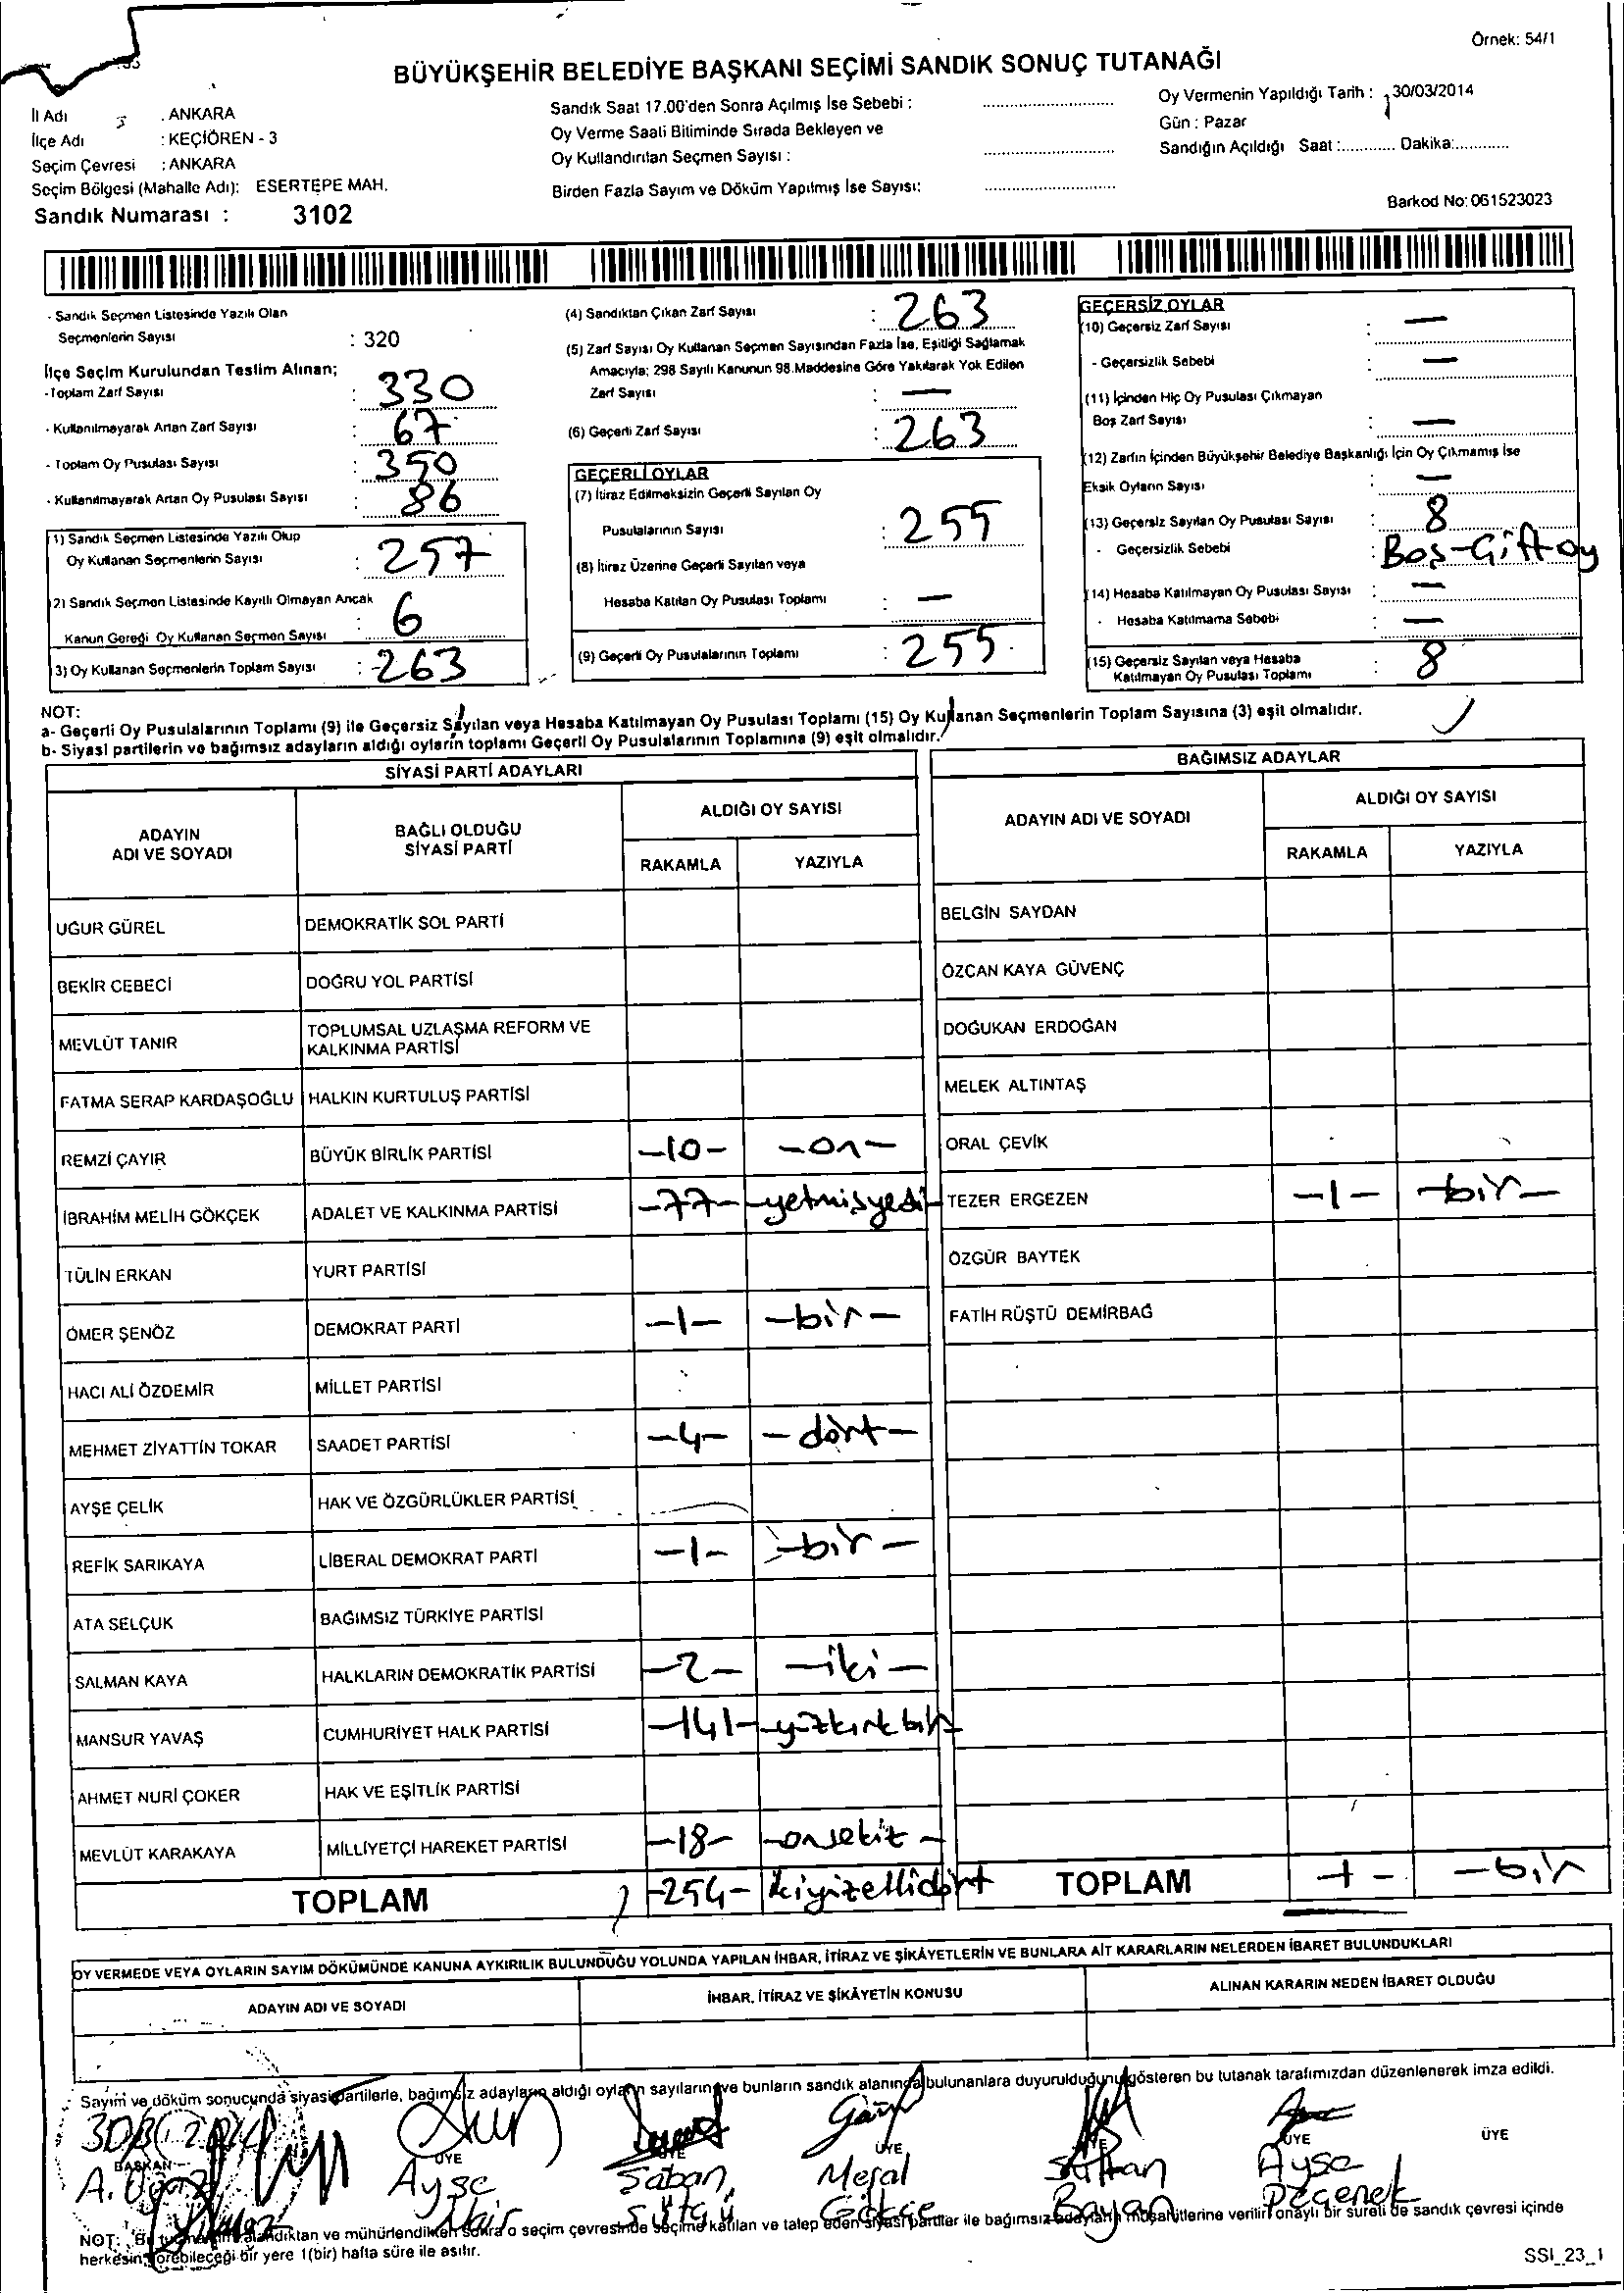 Örnek: 54/1
BÜYÜKŞEHİR BELEDİYE BAŞKANI SEÇİMİ SANDIK SONUÇ TUTANAĞI
İl Adı : ANKARA
İlçe Adı : KEÇİÖREN - 3
Seçim Çevresi : ANKARA
Seçim Bölgesi (Mahalle Adı): ESERTEPE MAH.
Sandık Numarası : 3102
Sandık Saat 17.00'den Sonra Açılmış İse Sebebi :
Oy Verme Saati Bitiminde Sırada Bekleyen ve
Oy Kullandırılan Seçmen Sayısı :
Birden Fazla Sayım ve Döküm Yapılmış İse Sayısı:
Oy Vermenin Yapıldığı Tarih : 30/03/2014
Gün : Pazar
Sandığın Açıldığı Saat :............ Dakika:............
Barkod No: 061523023
- Sandık Seçmen Listesinde Yazılı Olan
Seçmenlerin Sayısı : 320
İlçe Seçim Kurulundan Teslim Alınan;
- Toplam Zarf Sayısı : 330
- Kullanılmayarak Artan Zarf Sayısı : 67
- Toplam Oy Pusulası Sayısı : 350
- Kullanılmayarak Artan Oy Pusulası Sayısı : 86
(1) Sandık Seçmen Listesinde Yazılı Olup
Oy Kullanan Seçmenlerin Sayısı : 257
(2) Sandık Seçmen Listesinde Kayıtlı Olmayan Ancak
Kanun Gereği Oy Kullanan Seçmen Sayısı : 6
(3) Oy Kullanan Seçmenlerin Toplam Sayısı : 263
(4) Sandıktan Çıkan Zarf Sayısı : 263
(5) Zarf Sayısı Oy Kullanan Seçmen Sayısından Fazla İse, Eşitliği Sağlamak
Amacıyla; 298 Sayılı Kanunun 98.Maddesine Göre Yakılarak Yok Edilen
Zarf Sayısı : —
(6) Geçerli Zarf Sayısı : 263
GEÇERLİ OYLAR
(7) İtiraz Edilmeksizin Geçerli Sayılan Oy
Pusulalarının Sayısı : 255
(8) İtiraz Üzerine Geçerli Sayılan veya
Hesaba Katılan Oy Pusulası Toplamı : —
(9) Geçerli Oy Pusulalarının Toplamı : 255
GEÇERSİZ OYLAR
(10) Geçersiz Zarf Sayısı : —
- Geçersizlik Sebebi : —
(11) İçinden Hiç Oy Pusulası Çıkmayan
Boş Zarf Sayısı : —
(12) Zarfın İçinden Büyükşehir Belediye Başkanlığı İçin Oy Çıkmamış İse
Eksik Oyların Sayısı : —
(13) Geçersiz Sayılan Oy Pusulası Sayısı : 8
- Geçersizlik Sebebi : Boş-Çift oy
(14) Hesaba Katılmayan Oy Pusulası Sayısı : —
- Hesaba Katılmama Sebebi : —
(15) Geçersiz Sayılan veya Hesaba
Katılmayan Oy Pusulası Toplamı : 8
NOT:
a- Geçerli Oy Pusulalarının Toplamı (9) ile Geçersiz Sayılan veya Hesaba Katılmayan Oy Pusulası Toplamı (15) Oy Kullanan Seçmenlerin Toplam Sayısına (3) eşit olmalıdır.
b- Siyasi partilerin ve bağımsız adayların aldığı oyların toplamı Geçerli Oy Pusulalarının Toplamına (9) eşit olmalıdır.
SİYASİ PARTİ ADAYLARI
ADAYIN ADI VE SOYADI BAĞLI OLDUĞU SİYASİ PARTİ ALDIĞI OY SAYISI
RAKAMLA YAZIYLA
UĞUR GÜREL DEMOKRATİK SOL PARTİ
BEKİR CEBECİ DOĞRU YOL PARTİSİ
MEVLÜT TANIR TOPLUMSAL UZLAŞMA REFORM VE KALKINMA PARTİSİ
FATMA SERAP KARDAŞOĞLU HALKIN KURTULUŞ PARTİSİ
REMZİ ÇAYIR BÜYÜK BİRLİK PARTİSİ -10- -on-
İBRAHİM MELİH GÖKÇEK ADALET VE KALKINMA PARTİSİ -77- -yetmişyedi-
TÜLİN ERKAN YURT PARTİSİ
ÖMER ŞENÖZ DEMOKRAT PARTİ -1- -bir-
HACI ALİ ÖZDEMİR MİLLET PARTİSİ
MEHMET ZİYATTİN TOKAR SAADET PARTİSİ -4- -dört-
AYŞE ÇELİK HAK VE ÖZGÜRLÜKLER PARTİSİ
REFİK SARIKAYA LİBERAL DEMOKRAT PARTİ -1- -bir-
ATA SELÇUK BAĞIMSIZ TÜRKİYE PARTİSİ
SALMAN KAYA HALKLARIN DEMOKRATİK PARTİSİ -2- -iki-
MANSUR YAVAŞ CUMHURİYET HALK PARTİSİ -141- -yüzkırkbir-
AHMET NURİ ÇOKER HAK VE EŞİTLİK PARTİSİ
MEVLÜT KARAKAYA MİLLİYETÇİ HAREKET PARTİSİ -18- -onsekiz-
TOPLAM -254- ikiyüzellidört
BAĞIMSIZ ADAYLAR
ADAYIN ADI VE SOYADI ALDIĞI OY SAYISI
RAKAMLA YAZIYLA
BELGİN SAYDAN
ÖZCAN KAYA GÜVENÇ
DOĞUKAN ERDOĞAN
MELEK ALTINTAŞ
ORAL ÇEVİK
TEZER ERGEZEN -1- -bir-
ÖZGÜR BAYTEK
FATİH RÜŞTÜ DEMİRBAĞ
TOPLAM -1- -bir
OY VERMEDE VEYA OYLARIN SAYIM DÖKÜMÜNDE KANUNA AYKIRILIK BULUNDUĞU YOLUNDA YAPILAN İHBAR, İTİRAZ VE ŞİKÂYETLERİN VE BUNLARA AİT KARARLARIN NELERDEN İBARET BULUNDUKLARI
ADAYIN ADI VE SOYADI İHBAR, İTİRAZ VE ŞİKÂYETİN KONUSU ALINAN KARARIN NEDEN İBARET OLDUĞU
Sayım ve döküm sonucunda siyasi partilerle, bağımsız adayların aldığı oyların sayılarını ve bunların sandık alanında bulunanlara duyurulduğunu gösteren bu tutanak tarafımızdan düzenlenerek imza edildi.
BAŞKAN ÜYE ÜYE ÜYE ÜYE ÜYE ÜYE
Ayşe Şaban Meral Ayşe
Sütçü Gökçe Bayan Peçenek
NOT: Bu tutanak imzalandıktan ve mühürlendikten sonra o seçim çevresinde seçime katılan ve talep eden siyasi partiler ile bağımsız adayların müşahitlerine verilir onaylı bir sureti de sandık çevresi içinde
herkesin görebileceği bir yere 1(bir) hafta süre ile asılır.
SSI_23_1